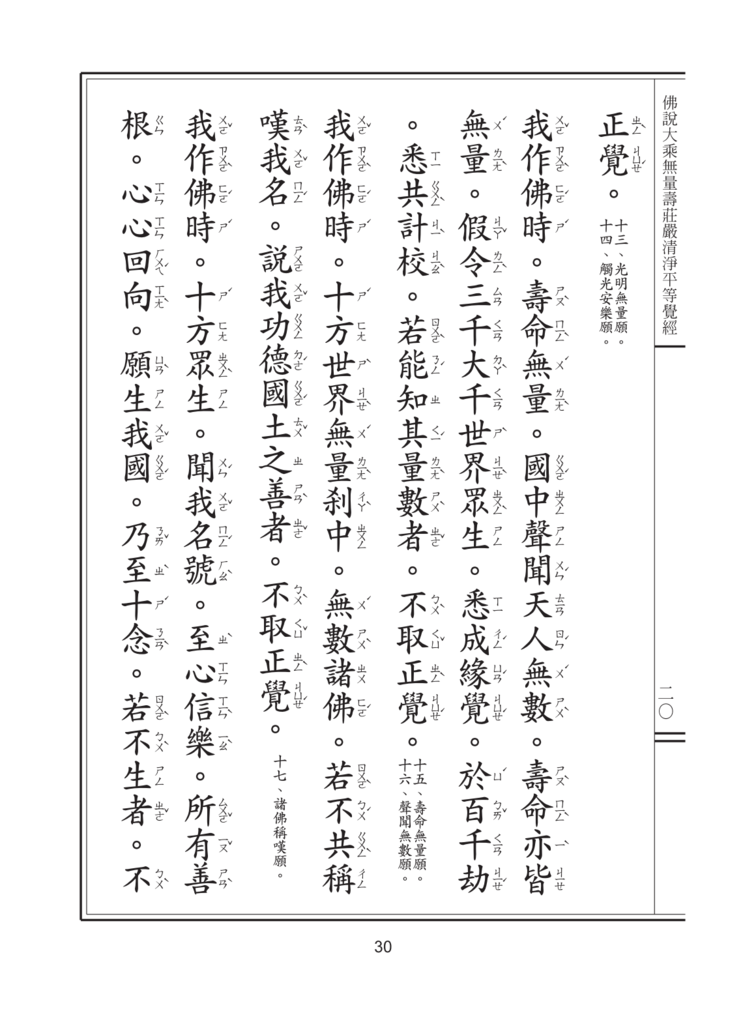 佛說大乘無量壽莊嚴清淨平等覺經
二〇
正覺。
十三、光明無量願。
十四、觸光安樂願。
我作佛時。壽命無量。國中聲聞天人無數。壽命亦皆
無量。假令三千大千世界眾生。悉成緣覺。於百千劫
。悉共計校。若能知其量數者。不取正覺。
十五、壽命無量願。
十六、聲聞無數願。
我作佛時。十方世界無量剎中。無數諸佛。若不共稱
嘆我名。說我功德國土之善者。不取正覺。
十七、諸佛稱嘆願。
我作佛時。十方眾生。聞我名號。至心信樂。所有善
根。心心回向。願生我國。乃至十念。若不生者。不
30